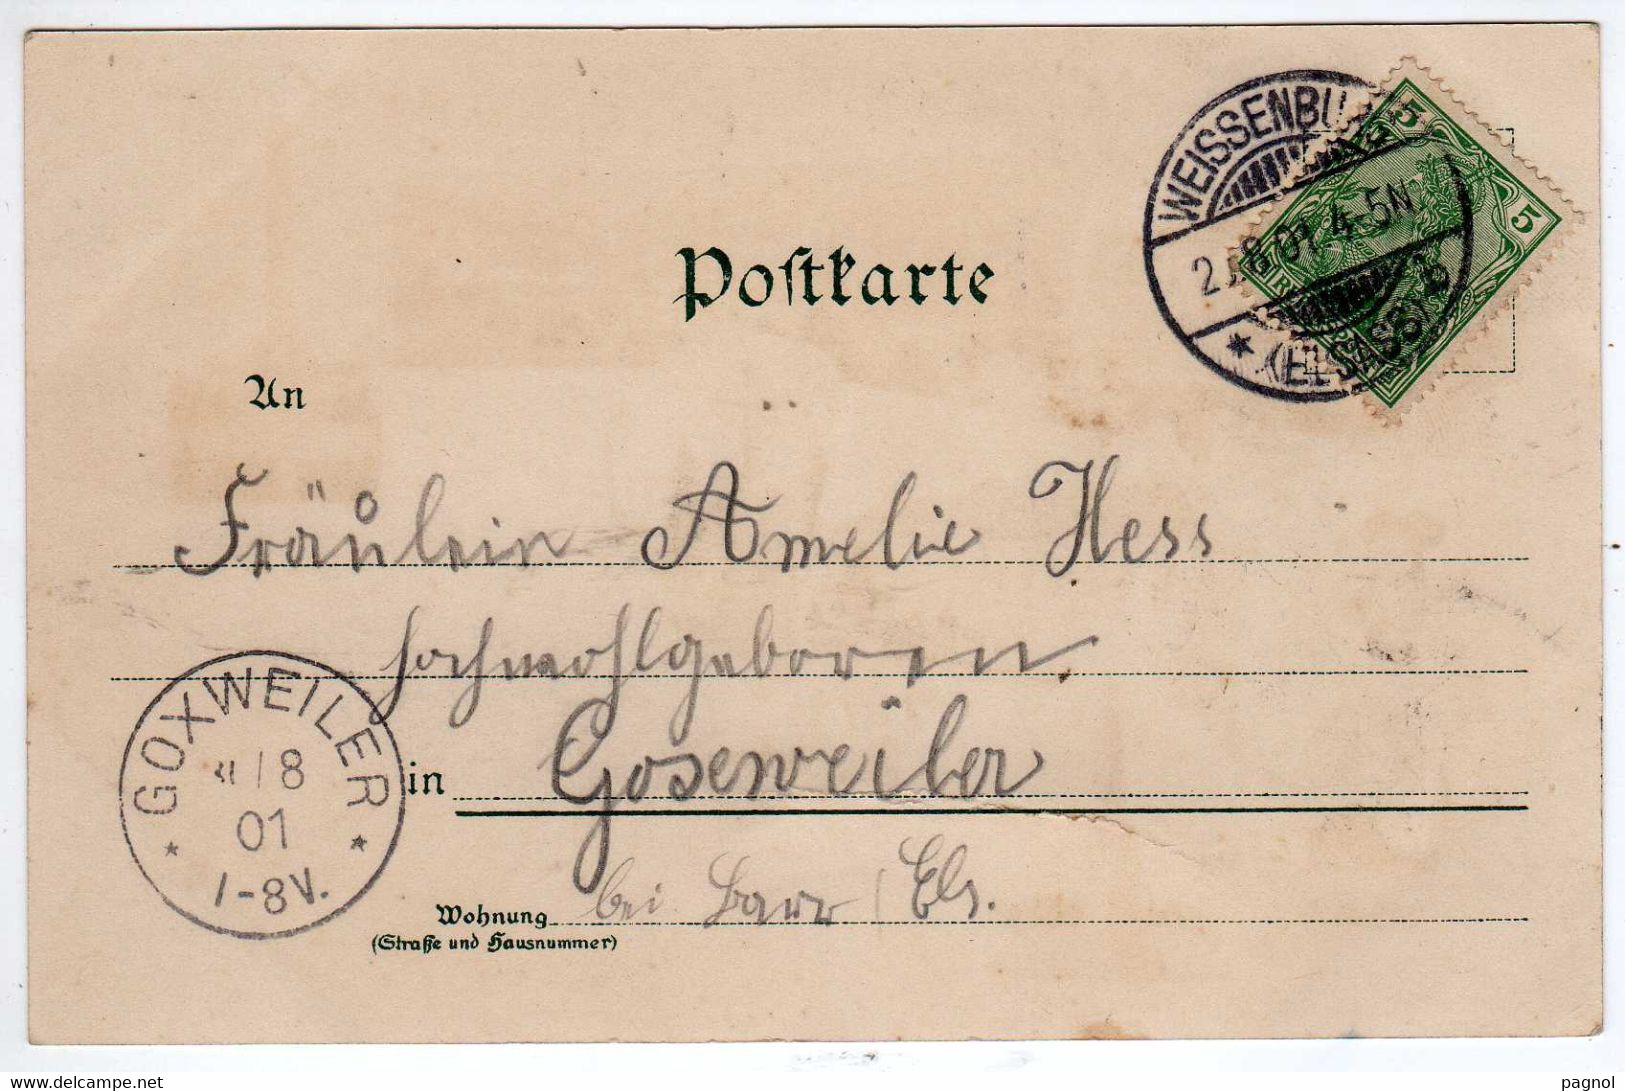 Postkarte
WEISSENBURG
2.8.01. 4-5N
* (ELSASS) b
5
5
An
Fräulein Amelie Hess
hochwohlgeboren
GOXWEILER
/8
01
1-8V.
in Goxeweiler
Wohnung bei Barr / Els.
(Straße und Hausnummer)
delcampe.net
pagnol